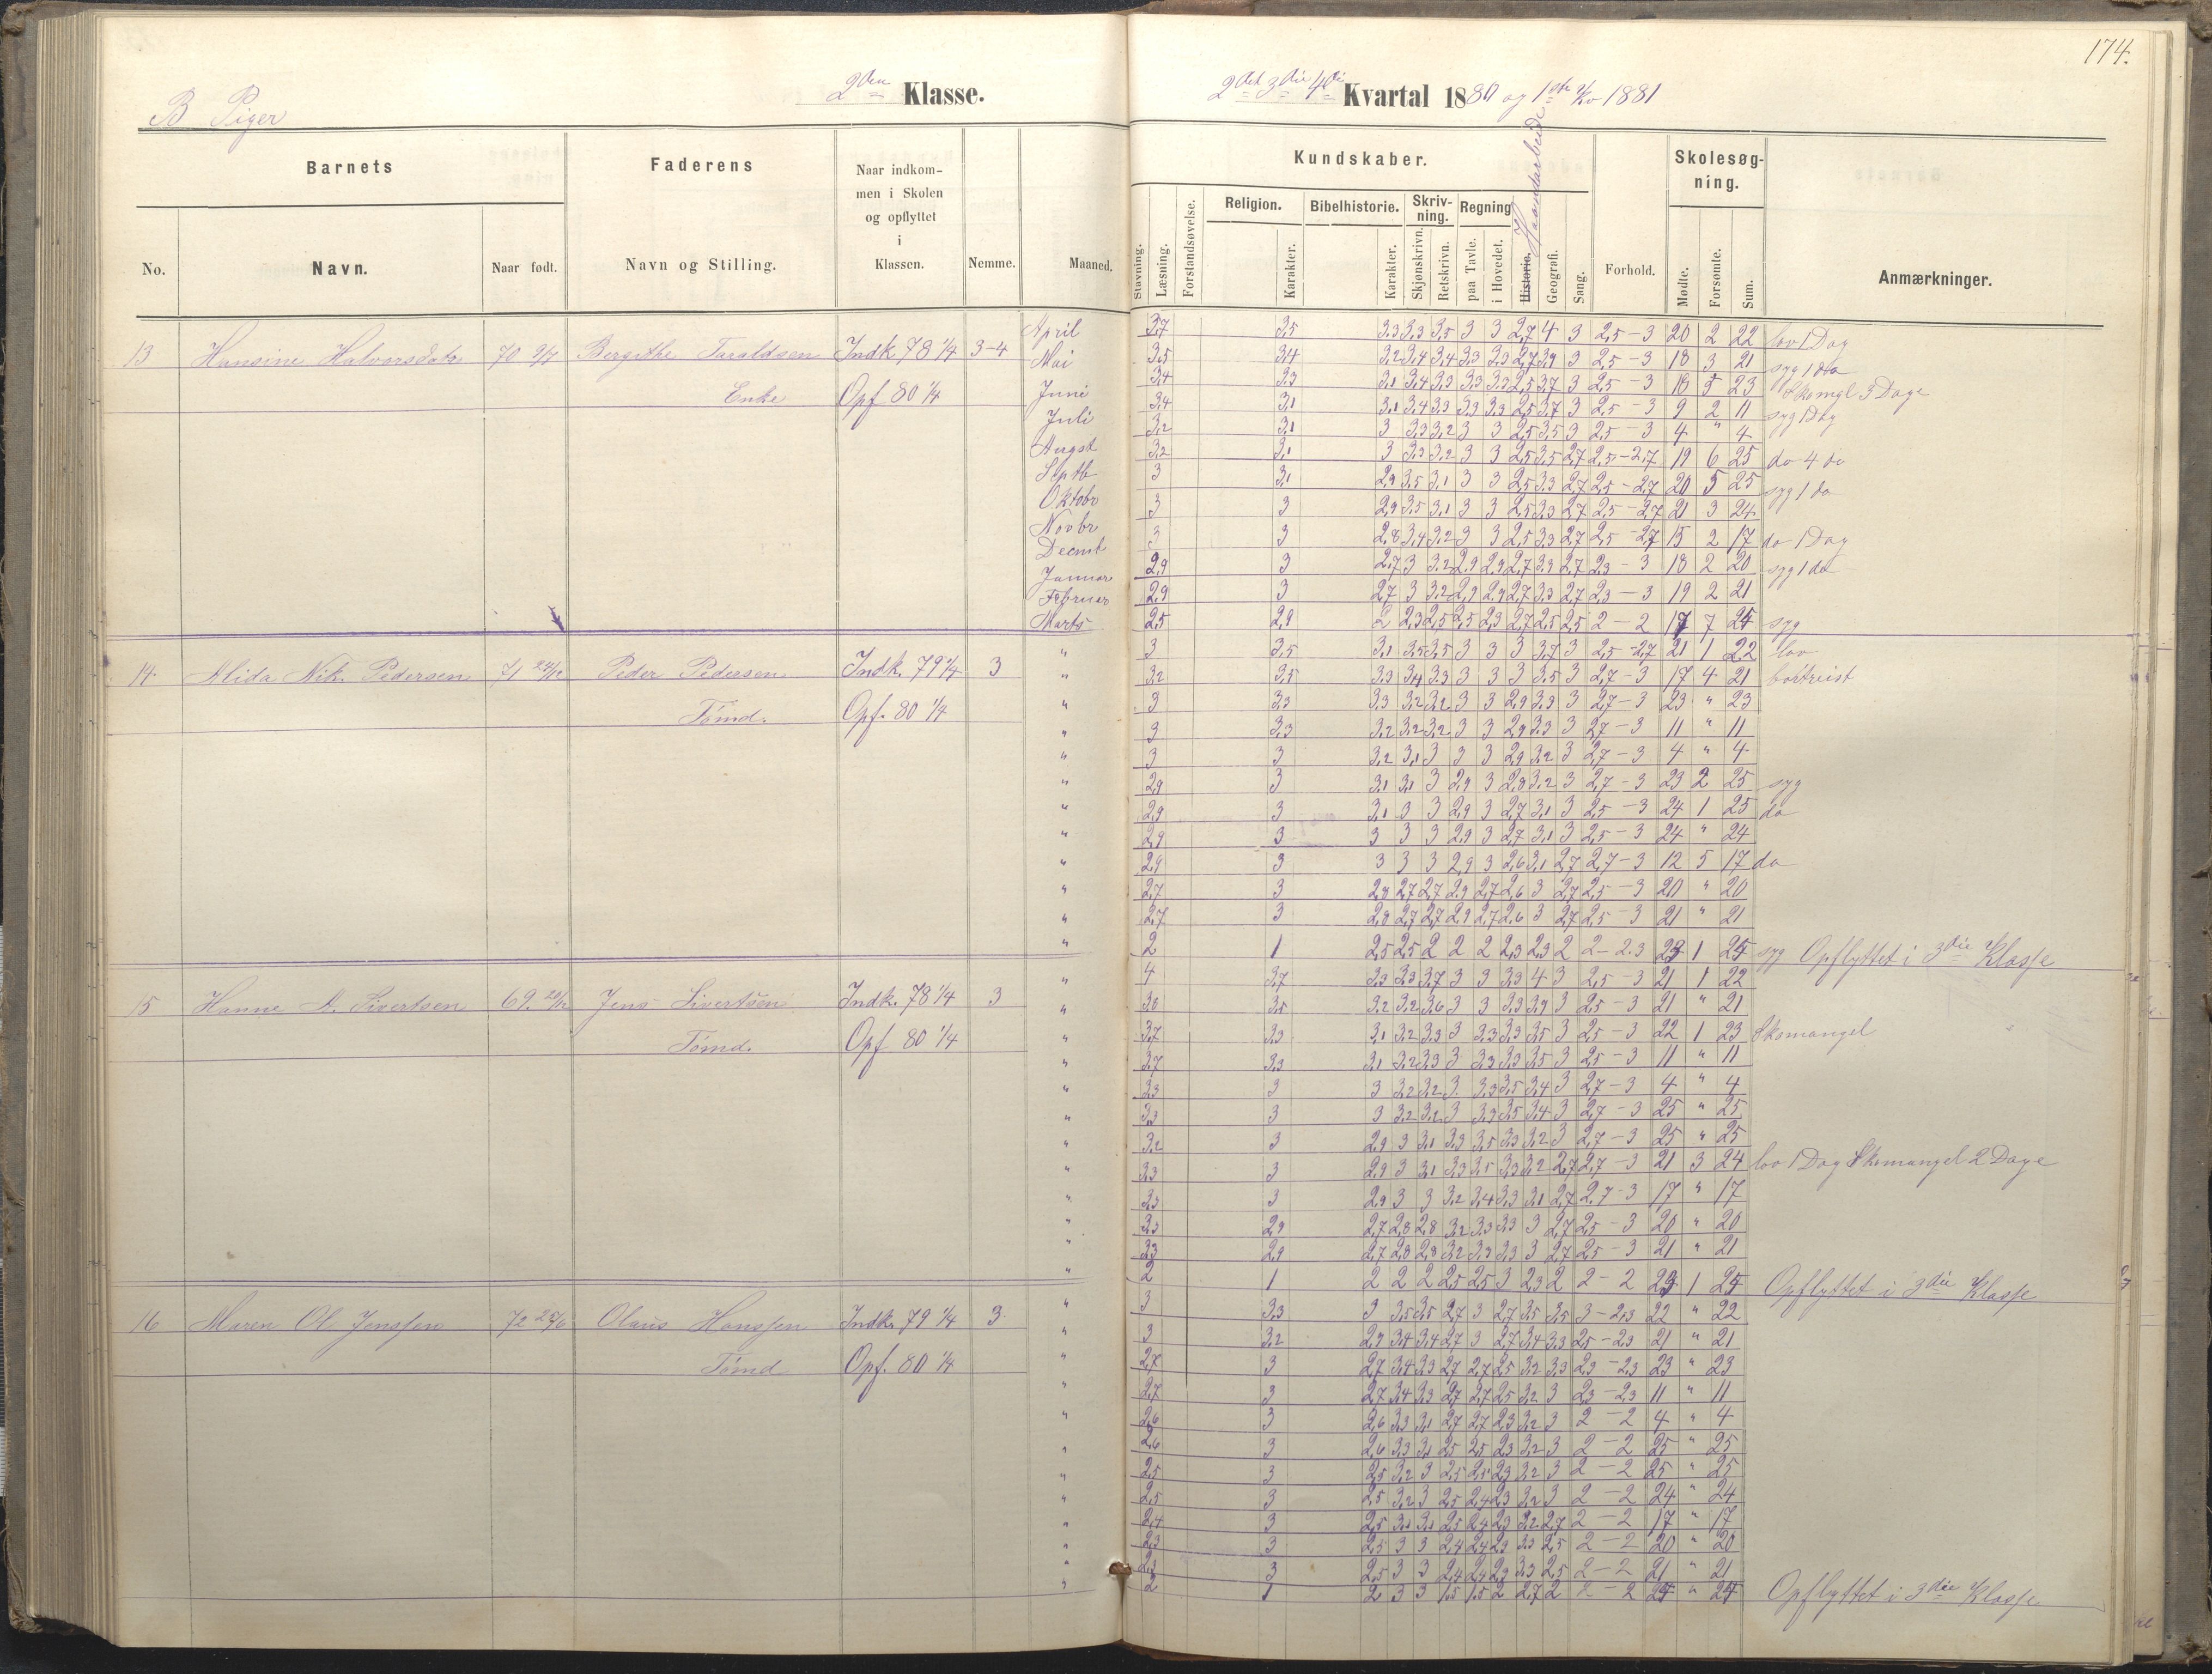 174.
B Piger
2den Klasse.
2det 3die 4de Kvartal 1880 og 1ste Kv 1881
Barnets
Faderens
Naar indkommen i Skolen og opflyttet i Klassen.
Nemme.
Maaned.
No.
Navn.
Naar født.
Navn og Stilling.
Kundskaber.
Skolesøgning.
Stavning.
Læsning.
Forstandsøvelse.
Religion.
Karakter.
Bibelhistorie.
Karakter.
Skrivning.
Skjønskrivn.
Retskrivn.
Regning
paa Tavle.
i Hovedet.
Historie. Haandarbeide
Geografi.
Sang.
Forhold.
Mødte.
Forsømte.
Sum.
Anmærkninger.
13 Hansine Halvorsdatr 70 2/7 Bergithe Taraldsen Indk 78 1/4 3-4
Enke Opf 80 1/4
April 3,7 3,5 3,3 3,3 3,5 3 3 2,7 4 3 2,5-3 20 2 22 lov 1 Dag
Mai 3,5 3,4 3,2 3,4 3,4 3,3 3,3 2,7 3,9 3 2,5-3 18 3 21 syg 1 do
Juni 3,4 3,3 3,1 3,4 3,3 3,3 3,3 2,5 3,7 3 2,5-3 18 5 23 Skomgl 3 Dage
Juli 3,4 3,1 3,1 3,4 3,3 3,3 3,3 2,5 3,7 3 2,5-3 9 2 11 syg 1 Dag
Augst 3,2 3,1 3 3,3 3,2 3 3 2,5 3,5 3 2,5-3 4 " 4
Septb 3,2 3,1 3 3,3 3,2 3 3 2,5 3,5 2,7 2,5-2,7 19 6 25 do 4 do
Oktobr 3 3,1 2,9 3,5 3,1 3 3 2,5 3,3 2,7 2,5-2,7 20 5 25 syg 1 do
Novbr 3 3 2,9 3,5 3,1 3 3 2,5 3,3 2,7 2,5-2,7 21 3 24
Decmb 3 3 2,8 3,4 3,2 3 3 2,5 3,3 2,7 2,5-2,7 15 2 17 do 1 Dag
Januar 2,9 3 2,7 3 3,2 2,9 2,9 2,7 3,3 2,7 2,3-3 18 2 20 syg 1 do
Februar 2,9 3 2,7 3 3,2 2,9 2,9 2,7 3,3 2,7 2,3-3 19 2 21
Marts 2,5 2,9 2 2,3 2,5 2,5 2,3 2,7 2,5 2,5 2-2 17 7 24 syg
14 Alida Nik. Pedersen 71 24/12 Peder Pedersen Indk. 79 1/4 3
Tømd. Opf. 80 1/4
" 3 3,5 3,1 3,5 3,5 3 3 3 3,7 3 2,5-2,7 21 1 22 lov
" 3,2 3,5 3,3 3,4 3,3 3 3 3 3,5 3 2,7-3 17 4 21 bortreist
" 3 3,3 3,3 3,2 3,2 3 3 2,9 3,3 3 2,7-3 23 " 23
" 3 3,3 3,2 3,2 3,2 3 3 2,9 3,3 3 2,7-3 11 " 11
" 3 3 3,2 3,1 3 3 3 2,9 3,2 3 2,7-3 4 " 4
" 2,9 3 3,1 3,1 3 2,9 3 2,8 3,2 3 2,7-3 23 2 25 syg
" 2,9 3 3,1 3 3 2,9 3 2,7 3,1 3 2,5-3 24 1 25 do
" 2,9 3 3 3 3 2,9 3 2,7 3,1 3 2,5-3 24 " 24
" 2,9 3 3 3 3 2,9 3 2,6 3,1 2,7 2,7-3 12 5 17 do
" 2,7 3 2,8 2,7 2,7 2,9 2,7 2,6 3 2,7 2,5-3 20 " 20
" 2,7 3 2,8 2,7 2,7 2,9 2,7 2,6 3 2,7 2,5-3 21 " 21
" 2 1 2,5 2,5 2 2 2 2,3 2,3 2 2-2,3 23 1 24 syg Opflyttet i 3die Klasse
15 Hanne A. Sivertsen 69. 20/12 Jens Sivertsen Indk. 78 1/4 3
Tømd. Opf 80 1/4
" 4 3,7 3,3 3,3 3,7 3 3 3,3 4 3 2,5-3 21 1 22
" 3,8 3,5 3,2 3,2 3,6 3 3 3,3 3,9 3 2,5-3 21 " 21
" 3,7 3,3 3,1 3,2 3,3 3 3,3 3,3 3,5 3 2,5-3 22 1 23 Skomangel
" 3,7 3,3 3,1 3,2 3,3 3 3,3 3,3 3,5 3 2,5-3 11 " 11
" 3,3 3 3 3,2 3,2 3 3,3 3,5 3,4 3 2,7-3 4 " 4
" 3,3 3 3 3,2 3,2 3 3,3 3,5 3,4 3 2,7-3 25 " 25
" 3,2 3 2,9 3 3,1 3,3 3,5 3,3 3,2 3 2,7-3 25 " 25
" 3,3 3 2,9 3 3,1 3,3 3,5 3,3 3,2 2,7 2,7-3 21 3 24 lov 1 Dag Skomangel 2 Dage
" 3,3 3 2,9 3 3 3,2 3,4 3,3 3,1 2,7 2,7-3 17 " 17
" 3,3 2,9 2,7 2,8 2,8 3,2 3,3 3,3 3 2,7 2,5-3 20 " 20
" 3,3 2,9 2,7 2,8 2,8 3,2 3,3 3,3 3 2,7 2,5-3 21 " 21
" 2 1 2 2 2 2,5 2,5 3 2,3 2 2-2 23 1 24 Opflyttet i 3die Klasse
16 Maren Ol. Jenssen 72 25/6 Olaus Hanssen Indk. 79 1/4 3
Tømd Opf. 80 1/4
" 3 3,3 3 3,5 3,5 2,7 3 2,7 3,5 3,5 3-2,3 22 " 22
" 3 3,2 2,9 3,4 3,4 2,7 3 2,7 3,4 3,3 2,5-2,3 21 " 21
" 2,7 3 2,7 3,4 3,3 2,7 2,7 2,5 3,2 3,3 2,3-2,3 23 " 23
" 2,7 3 2,7 3,4 3,3 2,7 2,7 2,5 3,2 3 2,3-2,3 11 " 11
" 2,6 3 2,6 3,3 3,1 2,7 2,7 2,3 3,2 3 2-2 4 " 4
" 2,6 3 2,6 3,3 3,1 2,5 2,5 2,3 3,2 3 2-2 25 " 25
" 2,5 3 2,5 3,2 3 2,5 2,5 2,3 3,2 3 2-2 25 " 25
" 2,5 3 2,5 3,2 3 2,5 2,4 2,3 3,2 3 2-2 24 " 24
" 2,4 3 2,5 3,1 3,1 2,5 2,4 2,3 3,2 2,7 2-2 17 " 17
" 2,3 3 2,5 3 3 2,4 2,4 2,3 3,3 2,5 2-2 20 " 20
" 2,3 3 2,5 3 3 2,4 2,4 2,3 3,3 2,5 2-2 21 " 21
" 2 1 2 3 3 1,5 1,5 2 2,7 2 2-2 24 " 24 Opflyttet i 3die Klasse